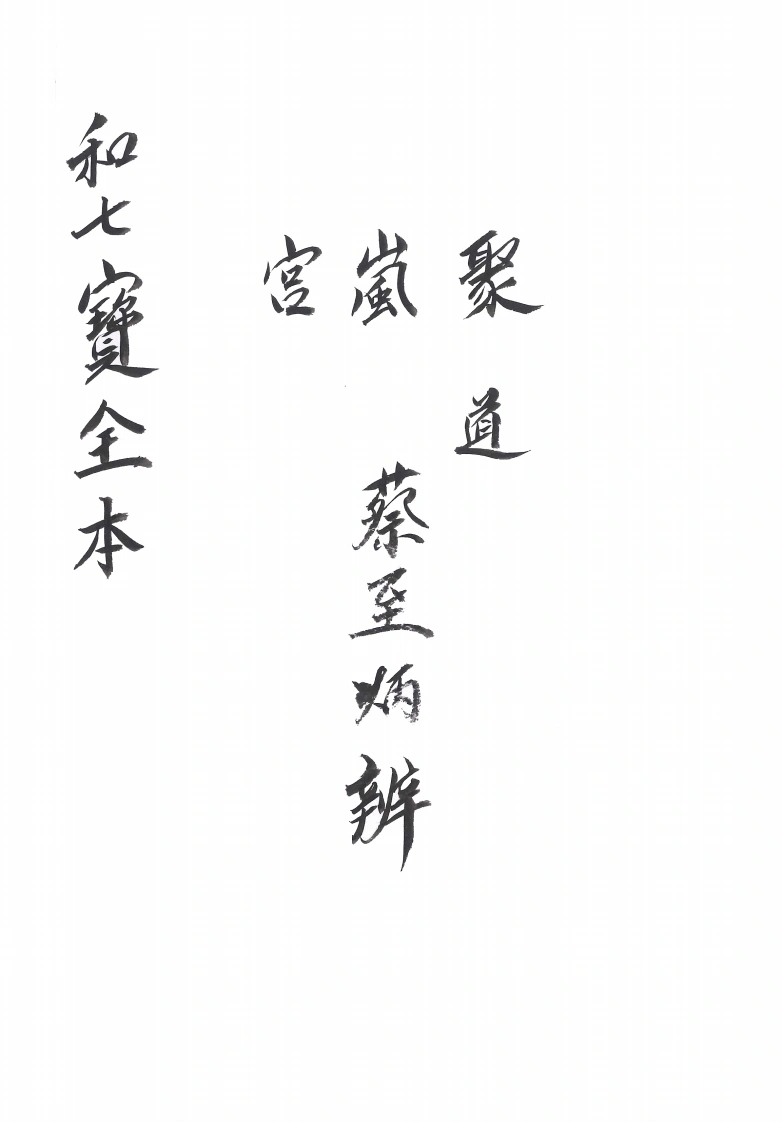 聚嵐宮
道
蔡至炳辨
和七寶全本